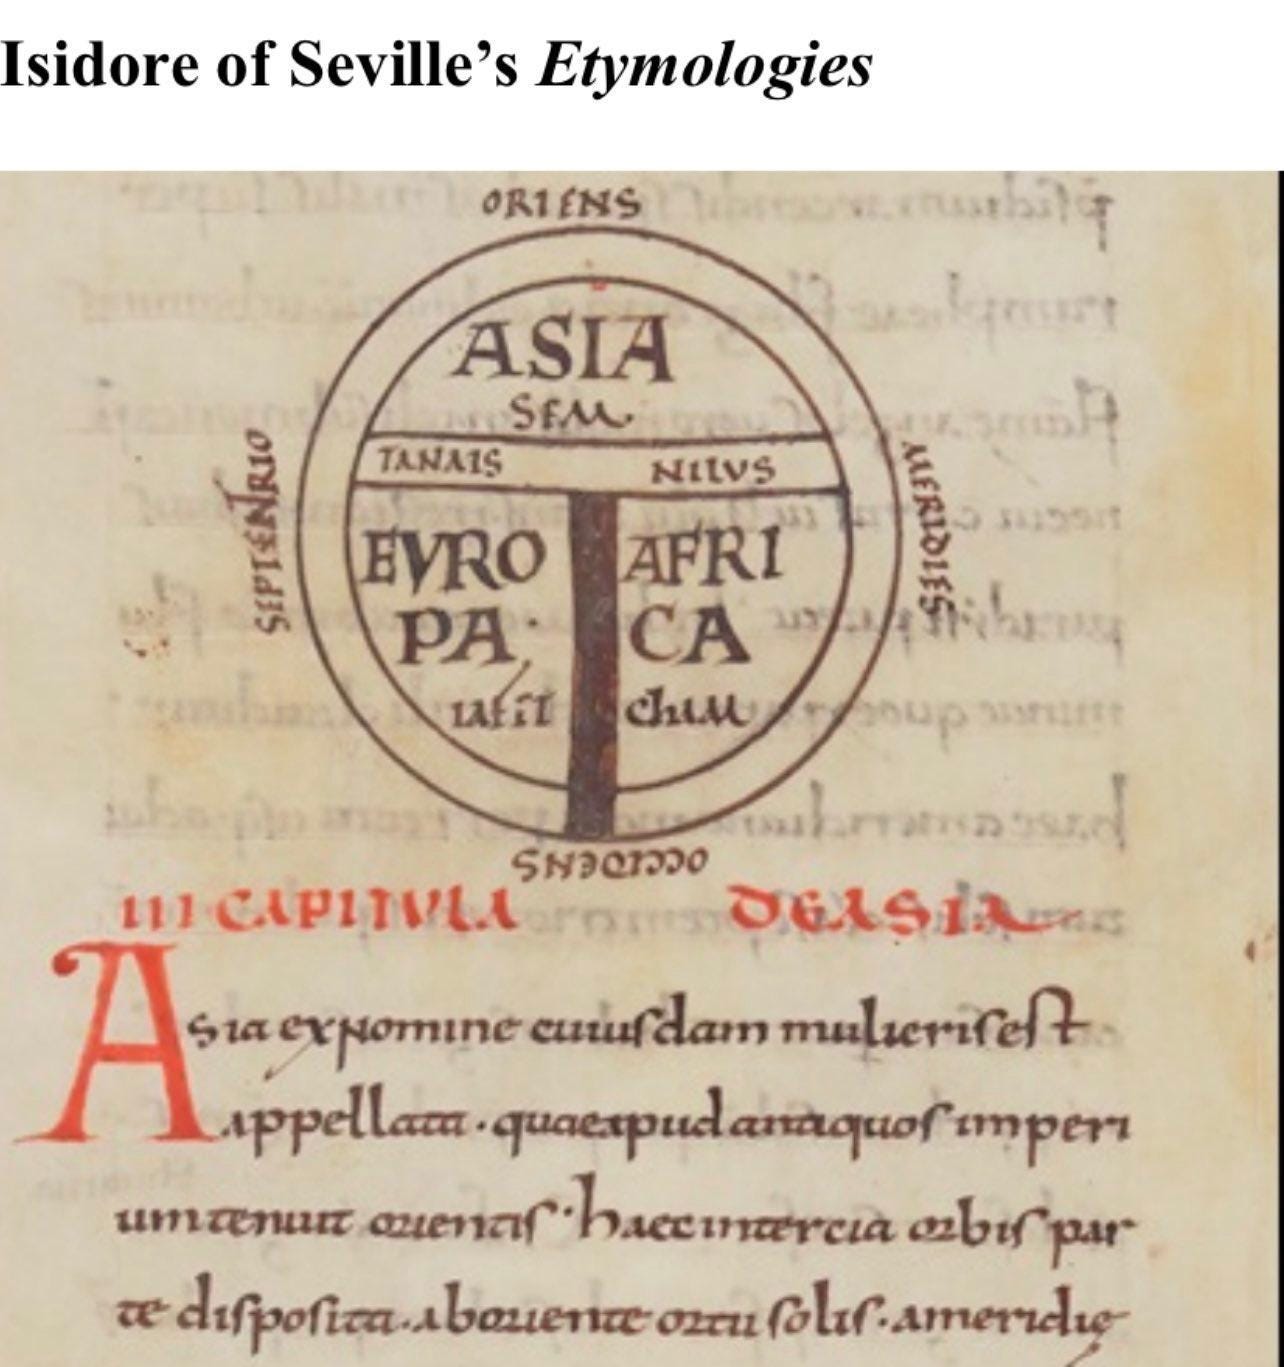 Isidore of Seville’s Etymologies
ORIENS
ASIA
SEM.
SEPTENTRIO
TANAIS NILVS
MERIDIES
EVRO
PA.
AFRI
CA
iafet
cham
OCCIDENS
III CAPITVLA DE ASIA
Asia ex nomine cuiusdam mulieris est
appellata. quae apud antiquos imperi
um tenuit orientis. haec in tercia orbis par
te disposita. ab oriente ortu solis. a meridie